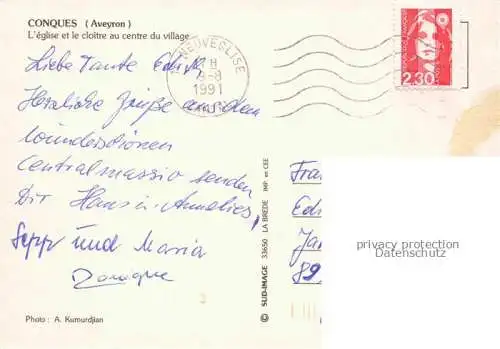 CONQUES (Aveyron)
L'église et le cloître au centre du village
NEUVEGLISE
18H
9-8
1991
2,30
Liebe Tante Edith
Herzliche Grüße aus dem
wunderschönen
Centralmassiv senden
Dir Hans u. Annelies,
Sepp und Maria
Fran
Edi
Jan
89
privacy protection
Datenschutz
© SUD-IMAGE 33650 LA BREDE IMP. en CEE
3
Photo : A. Kumurdjian